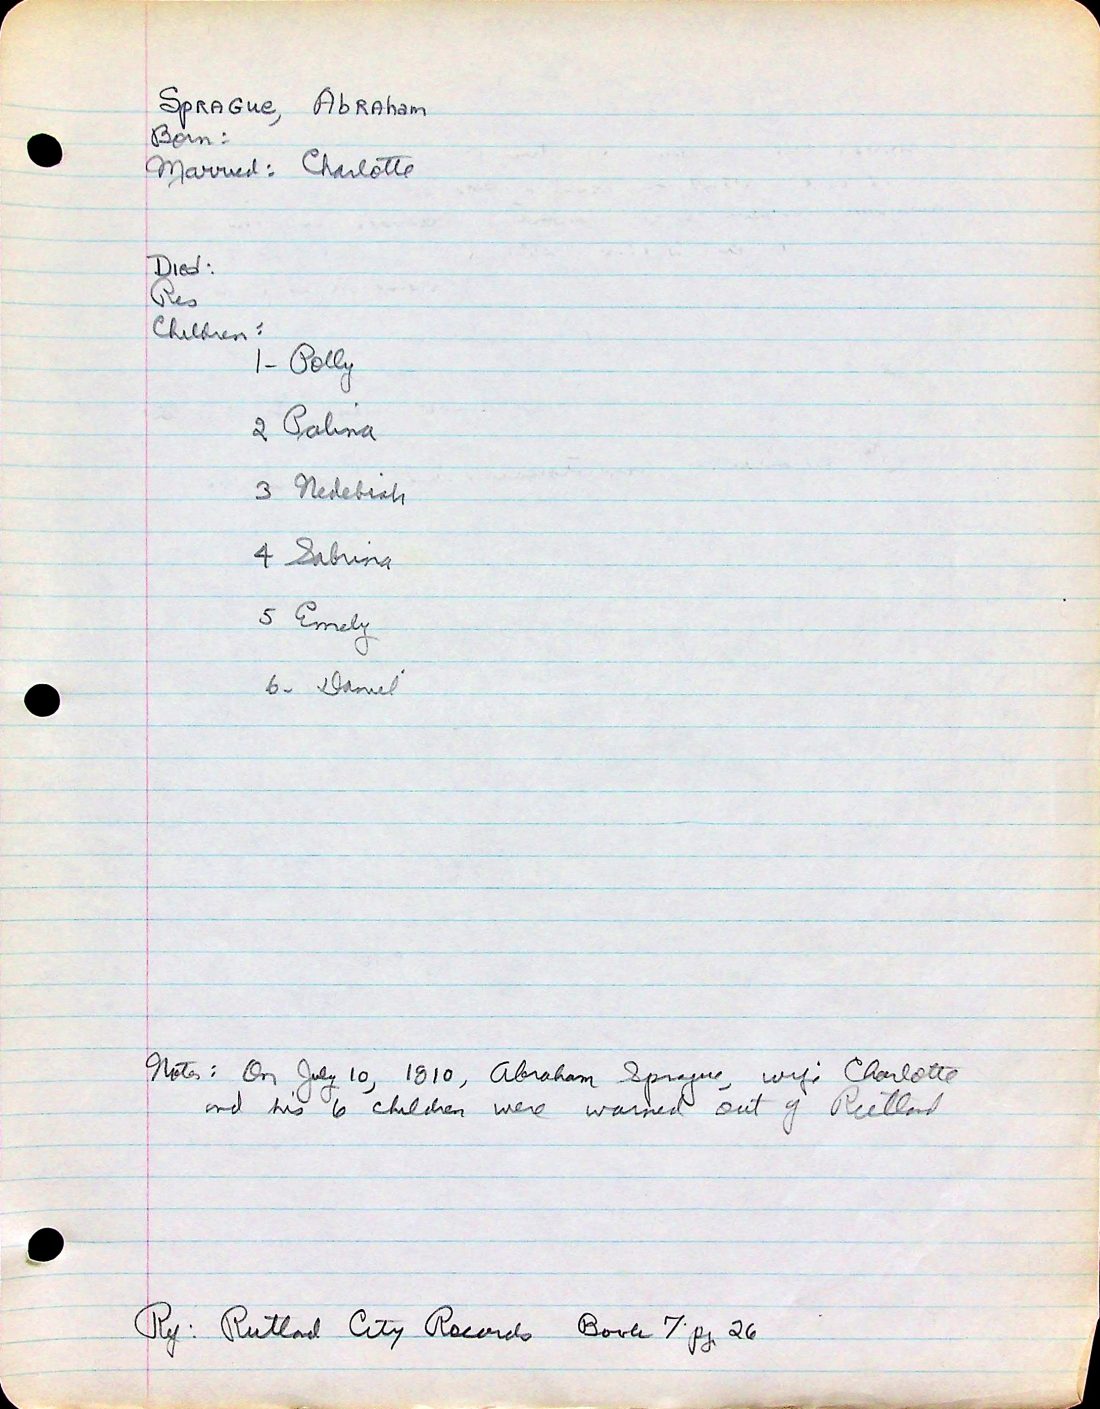 Sprague, Abraham
Born:
Married: Charlotte
Died:
Res
Children:
1- Polly
2 Palina
3 Nedebiah
4 Sabrina
5 Emely
6- Daniel
Notes: On July 10, 1810, Abraham Sprague, wife Charlotte
and his 6 children were warned out of Rutland
Ref: Rutland City Records Book 7 pg 26